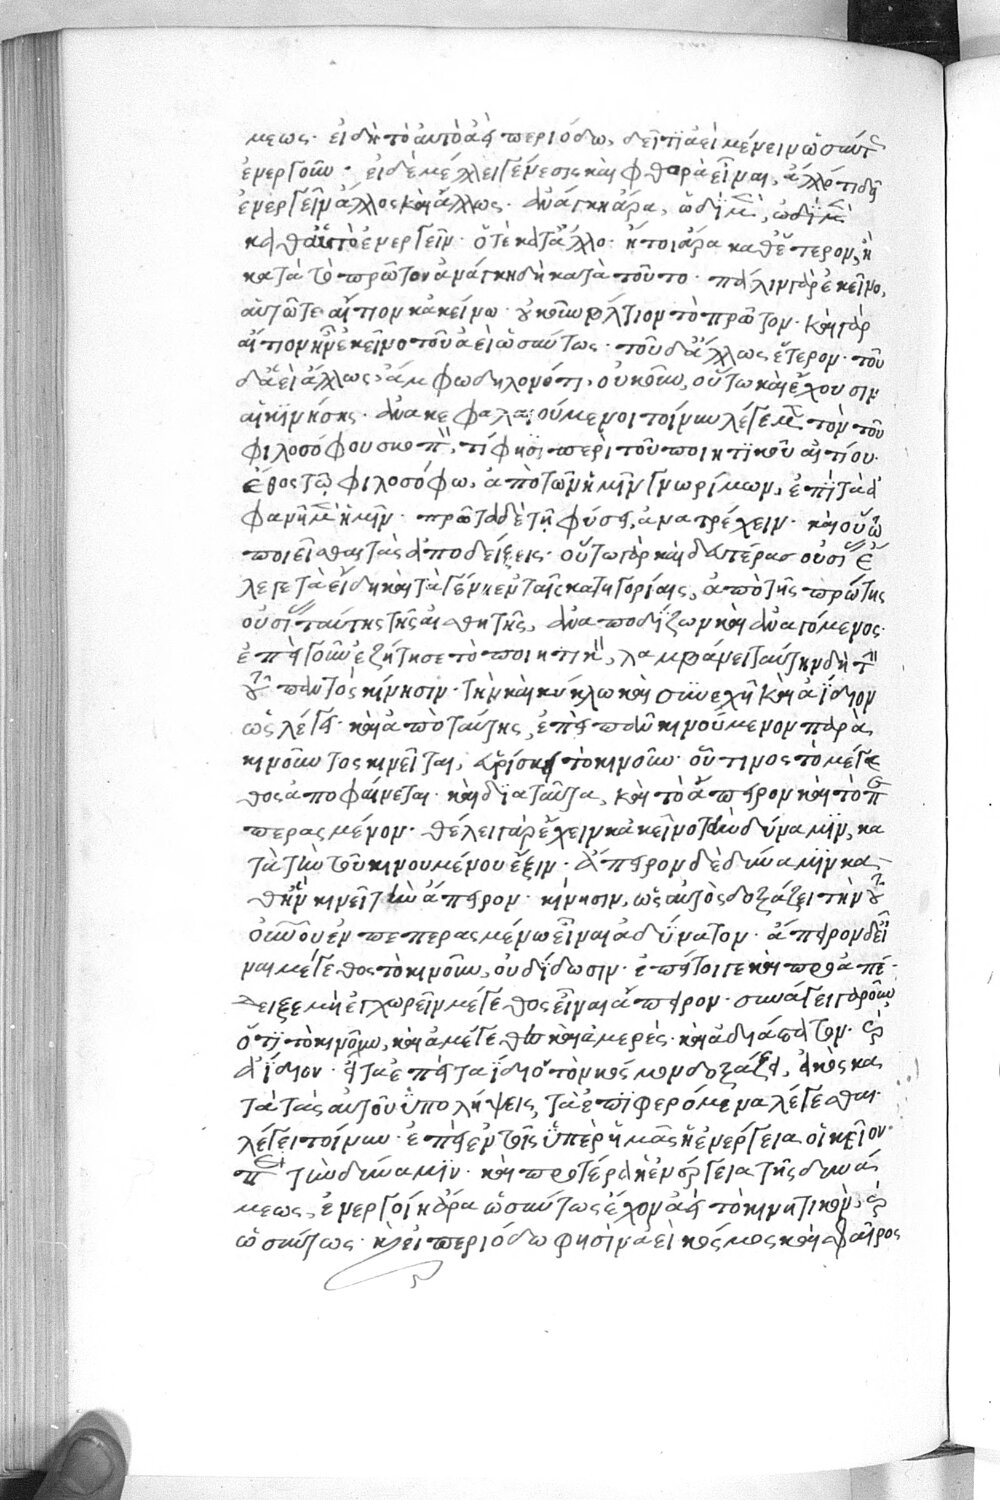 μεως· εἰ δὴ τὸ αὐτὸ ἀεὶ περιόδω, δεῖ τι ἀεὶ μένειν ὡσαύτως
ἐνεργοῦν· εἰ δὲ μέλλει γένεσις καὶ φθορὰ εἶναι, ἄλλό τι δεῖ
ἐνεργεῖν ἄλλως καὶ ἄλλως· ἀνάγκη ἄρα, ὡδὶ μὲν, ὡδὶ μὲν
καθ' αὑτὸ ἐνεργεῖν· ὁτὲ κατ' ἄλλο· ἤτοι ἄρα καθ' ἕτερον, ἢ
κατὰ τὸ πρῶτον ἀνάγκη δὴ κατὰ τοῦτο· πάλιν γὰρ ἐκεῖνο,
αὐτῶ τε αἴτιον κἀκείνω· οὐκοῦν βέλτιον τὸ πρῶτον· καὶ γὰρ
αἴτιον ἦν ἐκεῖνο τοῦ ἀεὶ ὡσαύτως· τοῦ δ' ἄλλως ἕτερον· τοῦ
δ' ἀεὶ ἄλλως, ἄμφω δηλονότι, οὐκοῦν, οὕτω καὶ ἔχουσιν
αἱ κινήσης· ἀνακεφαλαιούμενοι τοίνυν λέγομεν τὸν τοῦ
φιλοσόφου σκοπὸν, τί φησι περὶ τοῦ ποιητικοῦ αἰτίου·
ἔθος τῶ φιλοσόφω, ἀπὸ τῶν ἡμῖν γνωρίμων, ἐπὶ τὰ ἀ
φανῆ μὲν ἡμῖν· πρῶτα δὲ τῆ φύσει, ἀνατρέχειν· καὶ οὕτω
ποιεῖσθαι τὰς ἀποδείξεις· οὕτω γὰρ καὶ δευτέρας οὐσίας ἔ
λεγε τὰ εἴδη καὶ τὰ γένη ἐν ταῖς κατηγορίαις, ἀπὸ τῆς πρώτης
οὐσίας ταύτης τῆς αἰσθητῆς, ἀναποδίζων καὶ ἀναγόμενος·
ἐπεὶ γοῦν ἐζήτησε τὸ ποιητικὸν, λαμβάνει ταύτην δὴ τὴν
τοῦ παντὸς κίνησιν· τὴν καὶ κύκλω καὶ συνεχῆ καὶ ἀΐδιον
ὡς λέγει· καὶ ἀπὸ ταύτης, ἐπεὶ πᾶν κινούμενον παρὰ
κινοῦντος κινεῖται, εὑρίσκει τὸ κινοῦν· οὗτινος τὸ μέγε
θος ἀποφαίνεται· καὶ διὰ ταῦτα, καὶ τὸ ἄπειρον καὶ τὸ πε
περασμένον· θέλει γὰρ ἔχειν κἀκεῖνο τὴν δύναμιν, κα
τὰ τὴν τοῦ κινουμένου ἕξιν· ἄπειρον δὲ δύναμιν κα
θ' ἣν κινεῖ τὴν ἄπειρον· κίνησιν, ὡς αὐτὸς δοξάζει τὴν τοῦ
οὐνοῦ ἐν πεπερασμένω εἶναι ἀδύνατον· ἄπειρον δὲ εἶ
ναι μέγεθος τὸ κινοῦν, οὐ δίδωσιν· ἐπεί τοι γε καὶ προαπέ
δειξε μὴ ἐγχωρεῖν μέγεθος εἶναι ἄπειρον· συνάγει γὰρ οὖν,
ὅτι τὸ κινοῦν, καὶ ἀμέγεθες καὶ ἀμερὲς· καὶ ἀδιάστατον· καὶ
ἀΐδιον· εἶτα ἐπεὶ τὰ ἴδιον τὸν κόσμον δοξάζει, εἰκὸς κα
τὰ τὰς αὐτοῦ ὑπολήψεις, τὰ ἐπιφερόμενα λέγεσθαι·
λέγει τοίνυν· ἐπεὶ ἐν τοῖς ὑπὲρ ἡμᾶς ἡ ἐνέργεια οἰκεῖον·
περὶ τὴν δύναμιν· καὶ προτέρα ἡ ἐνέργεια τῆς δυνά
μεως, ἐνεργοίη ἄρα ὡσαύτως ἔχον ἀεὶ τὸ κινητικὸν, καὶ
ὡσαύτως· κλεὶ περιόδω φησὶν ἀεὶ κόσμος καὶ σφαῖρος